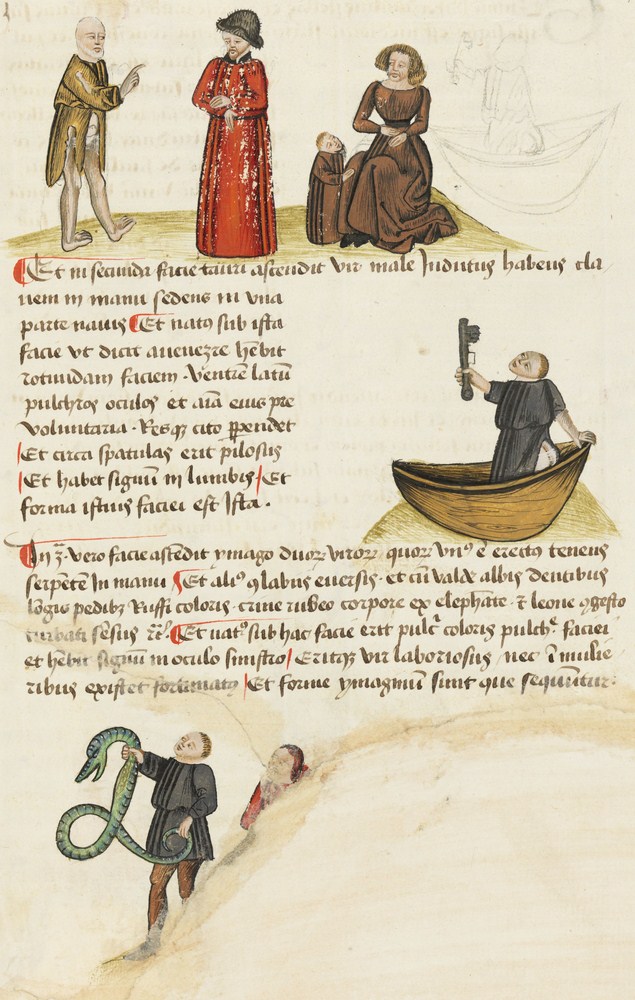 Et in secunda facie tauri ascendit vir male Indutus habens cla
uem in manu sedens in vna
parte nauis Et natꝯ sub ista
facie vt dicit auenezre hēbit
rotundam faciem. Ventrē latū
pulchros oculos et aīa eius pre
voluntaria. Resqꝫ cito ꝑpendet
Et circa spatulas erit pilosus
Et habet signū in lumbis. Et
forma istius faciei est Ista.
In ꝫᵃ. vero facie astēdit ymago duoꝝ viroꝝ quoꝝ vnꝯ ē erectꝯ tenens
serpētē In manu Et aliꝯ ꝯlabus euersis. et cū valde albis dentibus
lōgis pedibꝫ Ruffi coloris. crine rubeo corpore ex elephāte. ⁊ leone ꝯgesto
turbati sēsus
Et natꝯ sub hac facie erit pulcͥ coloris pulchͤ. faciei
et hēbit signū in oculo sinistro Eritqꝫ vir laboriosus nec ī mulie
ribus existet fortunatꝯ Et forme ymaginū sunt que sequūtur.